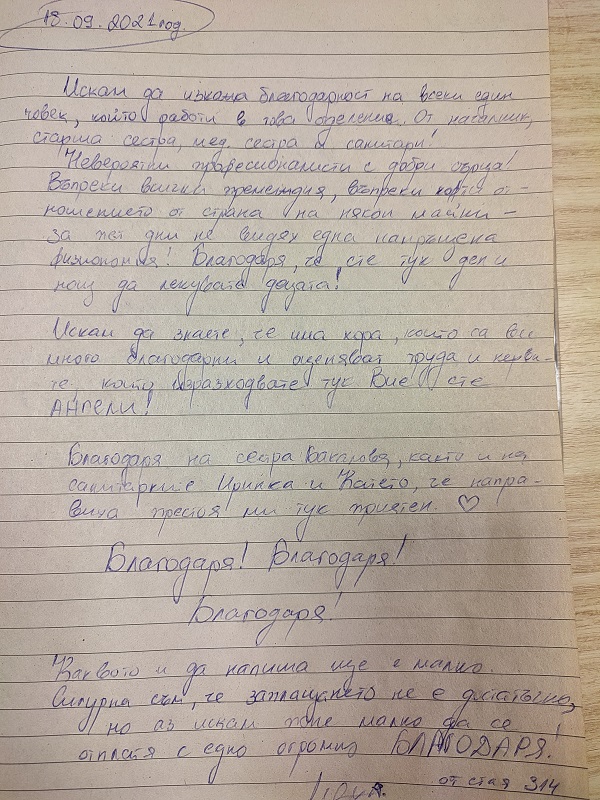 18.09.2021 год.
Искам да изкажа благодарност на всеки един
човек, който работи в това отделение. От началник,
старша сестра, мед. сестра и санитари!
Невероятни професионалисти с добри сърца!
Въпреки всички премеждия, въпреки от-
ношението от страна на някои майки -
за пет дни не видях една намръщена
физиономия! Благодаря, че сте тук ден и
нощ да лекувате децата!
Искам да знаете, че има хора, които са Ви
много благодарни и оценяват труда и нерви-
те, които изразходвате тук Вие сте
АНГЕЛИ!
Благодаря на сестра Бакалова, както и на
санитарките Иринка и Катето, че напра-
виха престоя ми тук приятен. ♡
Благодаря! Благодаря!
Благодаря!
Каквото и да напиша ще е малко.
Сигурна съм, че заплащането не е достатъчно,
но аз искам поне малко да се
отплатя с едно огромно БЛАГОДАРЯ!
от стая 314